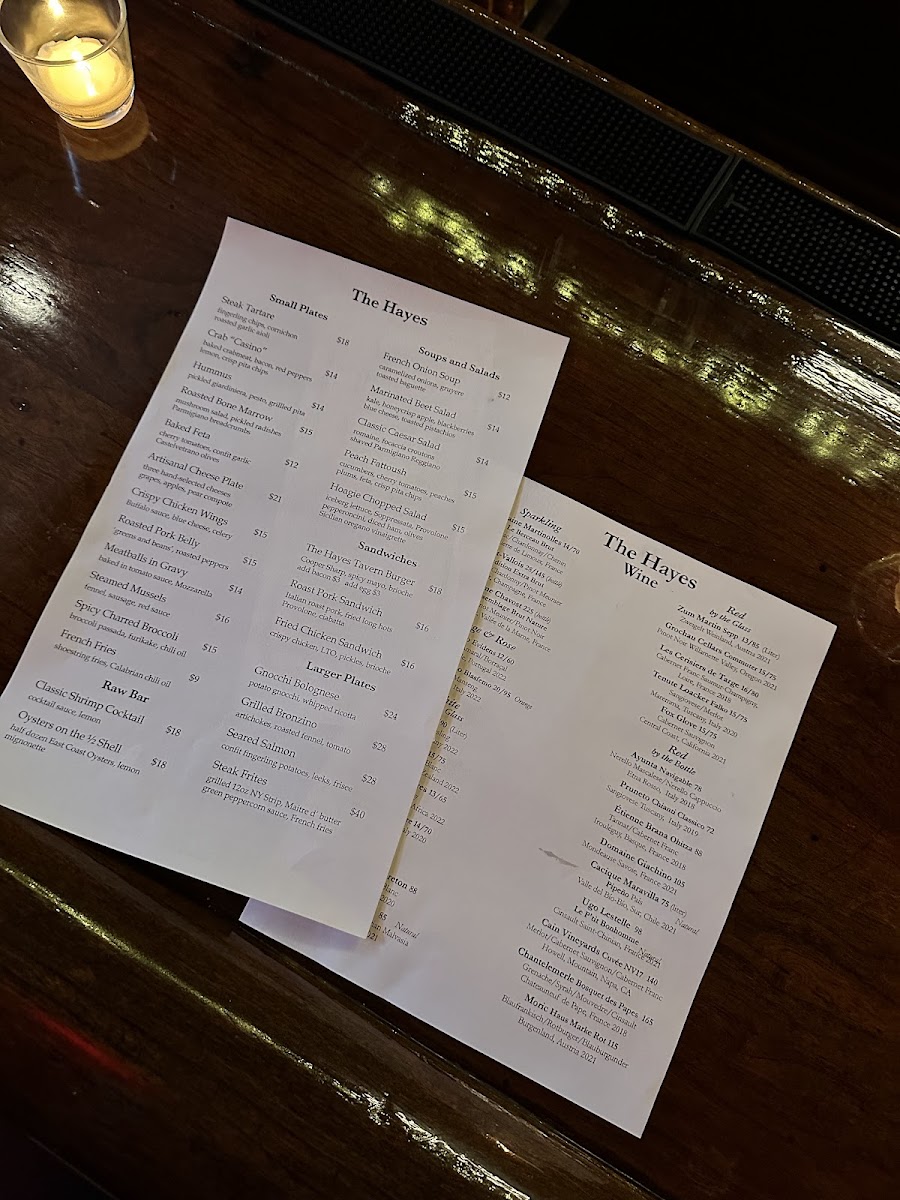 The Hayes
Small Plates
Steak Tartare
fingerling chips, cornichon
roasted garlic aioli $18
Crab "Casino"
baked crabmeat, bacon, red peppers
lemon, crisp pita chips $14
Hummus
pickled giardiniera, pesto, grilled pita $14
Roasted Bone Marrow
mushroom salad, pickled radishes
Parmigiano breadcrumbs $15
Baked Feta
cherry tomatoes, confit garlic
Castelvetrano olives $12
Artisanal Cheese Plate
three hand-selected cheeses
grapes, apples, pear compote $21
Crispy Chicken Wings
Buffalo sauce, blue cheese, celery $15
Roasted Pork Belly
greens and beans', roasted peppers $15
Meatballs in Gravy
baked in tomato sauce, Mozzarella $14
Steamed Mussels
fennel, sausage, red sauce $16
Spicy Charred Broccoli
broccoli passada, furikake, chili oil $15
French Fries
shoestring fries, Calabrian chili oil $9
Raw Bar
Classic Shrimp Cocktail
cocktail sauce, lemon $18
Oysters on the ½ Shell
half dozen East Coast Oysters, lemon
mignonette $18
Soups and Salads
French Onion Soup
caramelized onions, gruyere
toasted baguette $12
Marinated Beet Salad
kale, honeycrisp apple, blackberries
blue cheese, toasted pistachios $14
Classic Caesar Salad
romaine, focaccia croutons
shaved Parmigiano Reggiano $14
Peach Fattoush
cucumbers, cherry tomatoes, peaches
plums, feta, crisp pita chips $15
Hoagie Chopped Salad
iceberg lettuce, Soppressata, Provolone
pepperoncini, diced ham, olives
sicilian oregano vinaigrette $15
Sandwiches
The Hayes Tavern Burger
Cooper Sharp, spicy mayo, brioche
add bacon $3 add egg $3 $18
Roast Pork Sandwich
Italian roast pork, fried long hots
Provolone, ciabatta $16
Fried Chicken Sandwich
crispy chicken, LTO, pickles, brioche $16
Larger Plates
Gnocchi Bolognese
potato gnocchi, whipped ricotta $24
Grilled Bronzino
artichokes, roasted fennel, tomato $28
Seared Salmon
confit fingerling potatoes, leeks, frisee $28
Steak Frites
grilled 12oz NY Strip, Maitre d' butter
green peppercorn sauce, French fries $40
The Hayes
Wine
Sparkling
aine Martinolles 14/70
Le Berceau Brut
/Chardonnay/Chenin
de Limoux, France
Vallois 28/145
Extra Brut
/Pinot Meunier
Champagne, France
Chavost 225
Assemblage Brut Nature
Meunier/Pinot Noir
Vallée de la Marne, France
& Rosé
Evidens 12/60
Portugal 2022
20/95 Orange
Italy 2022
(Liter)
2022
13/65
2022
14/70
2020
reton 88
Blanc
2020
85 Natural
Malvasia
2021
Red
by the Glass
Zum Martin Sepp 13/85 (Liter)
Zweigelt Weinland, Austria 2021
Grochau Cellars Commuter 15/75
Pinot Noir Willamette Valley, Oregon 2021
Les Cerisiers de Targe 16/80
Cabernet Franc Saumur-Champigny,
Loire, France 2018
Tenute Loacker Falko 15/75
Sangiovese/Merlot
Maremma, Tuscany, Italy 2020
Fox Glove 15/75
Cabernet Sauvignon
Central Coast, California 2021
Red
by the Bottle
Ayunta Navigabile 78
Nerello Mascalese/Nerello Cappuccio
Etna Rosso, Italy 2018
Pruneto Chianti Classico 72
Sangiovese Tuscany, Italy 2019
Étienne Brana Ohitza 88
Tannat/Cabernet Franc
Irouléguy, Basque, France 2018
Domaine Giachino 105
Mondeuse Savoie, France 2021
Cacique Maravilla 75 (liter)
Pipeño País
Valle del Bio-Bio, Sur, Chile 2021 Natural
Ugo Lestelle 98
Le P'tit Bonhomme
Cinsault Saint-Chinian, France 2021 Natural
Cain Vineyards Cuvée NV17 140
Merlot/Cabernet Sauvignon/Cabernet Franc
Howell, Mountain, Napa, CA
Chantelemerle Bosquet des Papes 165
Grenache/Syrah/Mouvedre/Cinsault
Chateauneuf de Pape, France 2018
Moric Haus Marke Rot 115
Blaufrankisch/Rotburger/Blauburgunder
Burgenland, Austria 2021